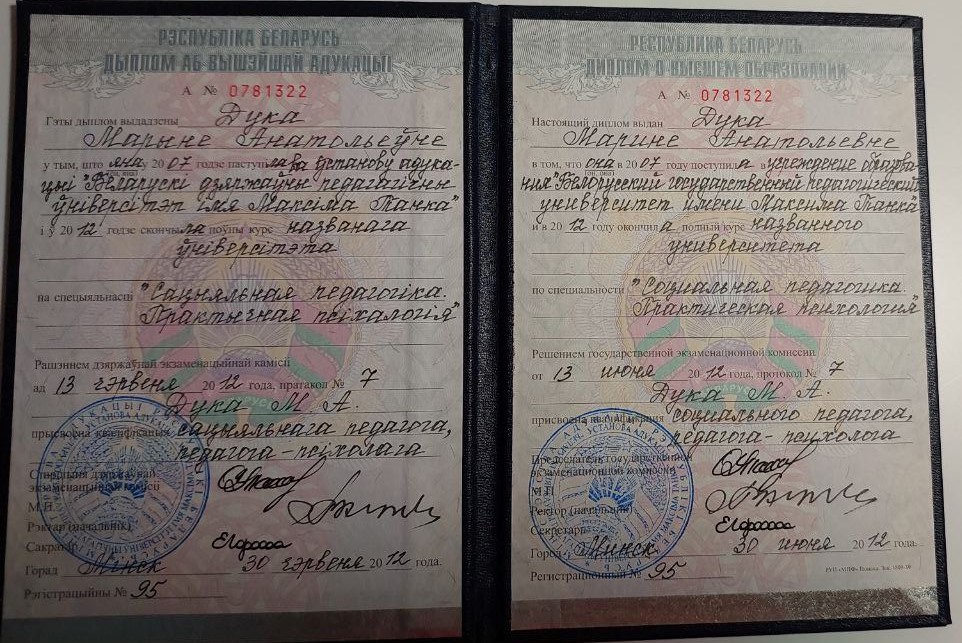 РЭСПУБЛІКА БЕЛАРУСЬ
ДЫПЛОМ АБ ВЫШЭЙШАЙ АДУКАЦЫІ
А № 0781322
Гэты дыплом выдадзены Дука
Марыне Анатольеўне
у тым, што яна у 2007 годзе паступіла ва ўстанову адука-
цыі "Беларускі дзяржаўны педагагічны
ўніверсітэт імя Максіма Танка"
і ў 2012 годзе скончыла поўны курс названага
ўніверсітэта
па спецыяльнасці "Сацыяльная педагогіка.
Практычная псіхалогія"
Рашэннем дзяржаўнай экзаменацыйнай камісіі
ад 13 чэрвеня 2012 года, пратакол № 7
Дука М. А.
прысвоена кваліфікацыя сацыяльнага педагога,
педагога-псіхолага
Старшыня дзяржаўнай
экзаменацыйнай камісіі
М.П.
Рэктар (начальнік)
Сакратар
Горад Мінск 30 чэрвеня 2012 года.
Рэгістрацыйны № 95
РЕСПУБЛИКА БЕЛАРУСЬ
ДИПЛОМ О ВЫСШЕМ ОБРАЗОВАНИИ
А № 0781322
Настоящий диплом выдан Дука
Марине Анатольевне
в том, что она в 2007 году поступила в учреждение образова-
ния "Белорусский государственный педагогический
университет имени Максима Танка"
и в 2012 году окончила полный курс названного
университета
по специальности "Социальная педагогика.
Практическая психология"
Решением государственной экзаменационной комиссии
от 13 июня 2012 года, протокол № 7
Дука М. А.
присвоена квалификация социального педагога,
педагога-психолога
Председатель государственной
экзаменационной комиссии
М.П.
Ректор (начальник)
Секретарь
Город Минск 30 июня 2012 года.
Регистрационный № 95